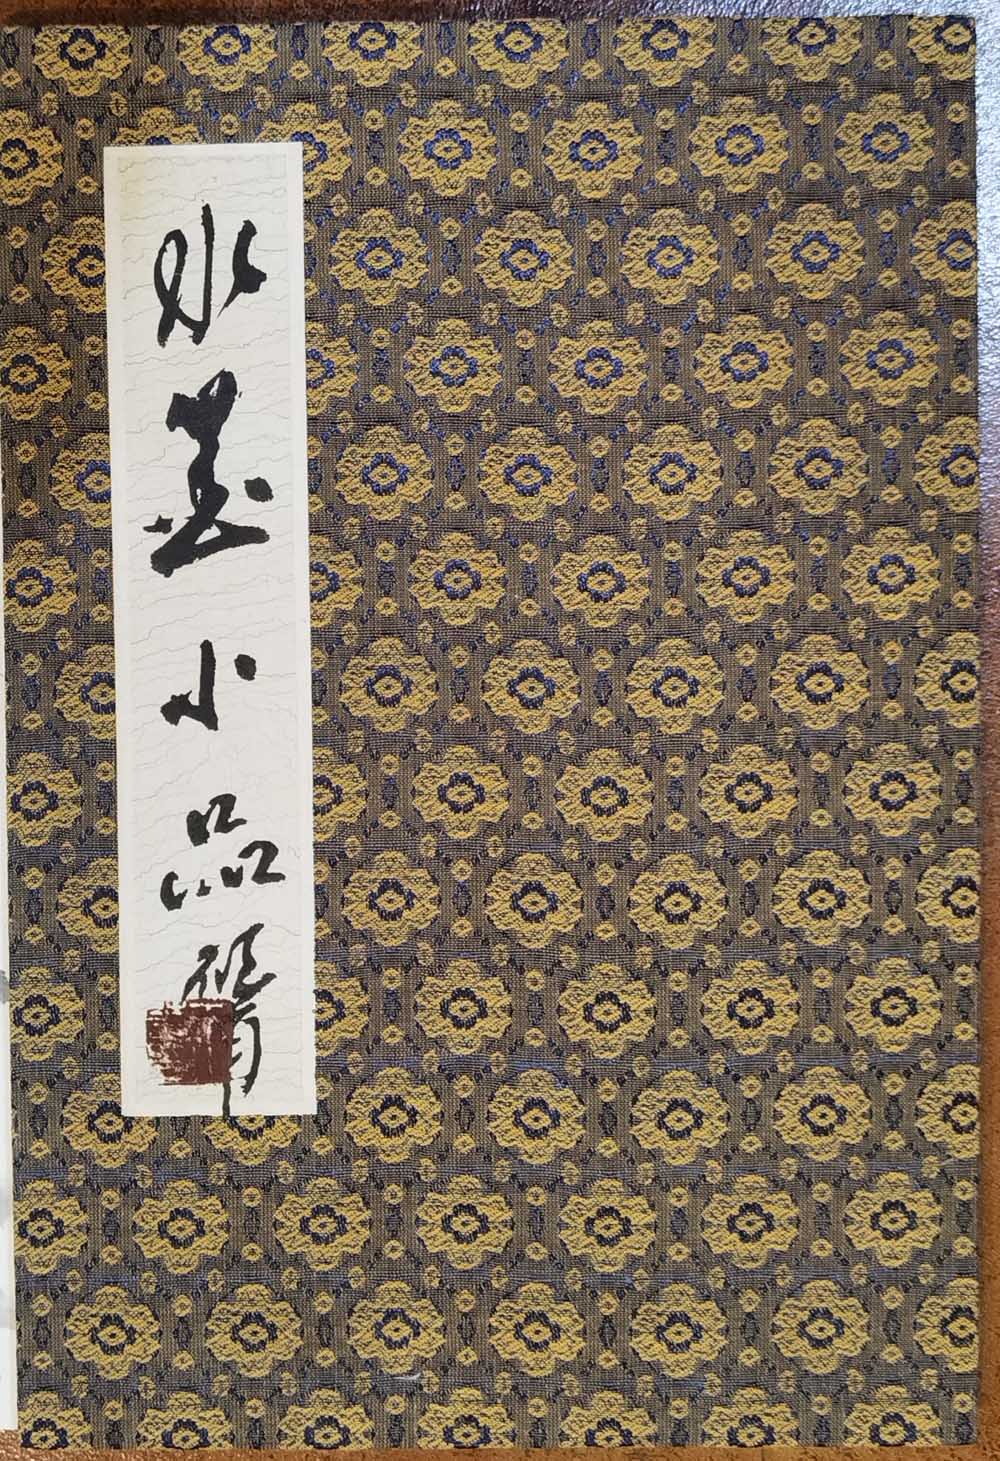 水墨小品